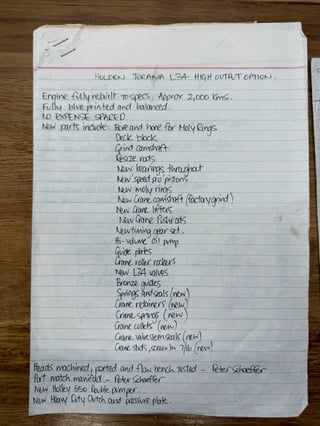 HOLDEN TORANA L34 HIGH OUTPUT OPTION.
Engine fully rebuilt to specs. Approx 2,000 kms.
Fully blue printed and balanced.
NO EXPENSE SPARED
New parts include: Bore and hone for Moly Rings
Deck block
Grind camshaft.
Resize rods
New bearings throughout
New speed pro pistons
New moly rings
New Crane camshaft (factory grind)
New Crane lifters
New Crane Pushrods
New timing gear set.
Hi-volume oil pump
Guide plates
Crane roller rockers
New L34 valves
Bronze guides
Springs and seals (new)
Crane retainers (new)
Crane springs (new)
Crane collets (new)
Crane valve stem seals (new)
Crane studs, screw in 7/16 (new)
Heads machined, ported and flow bench tested - Peter Schaeffer
Port match manifold - Peter Schaeffer
New Holley 650 Double pumper.
New Heavy Duty Clutch and pressure plate.